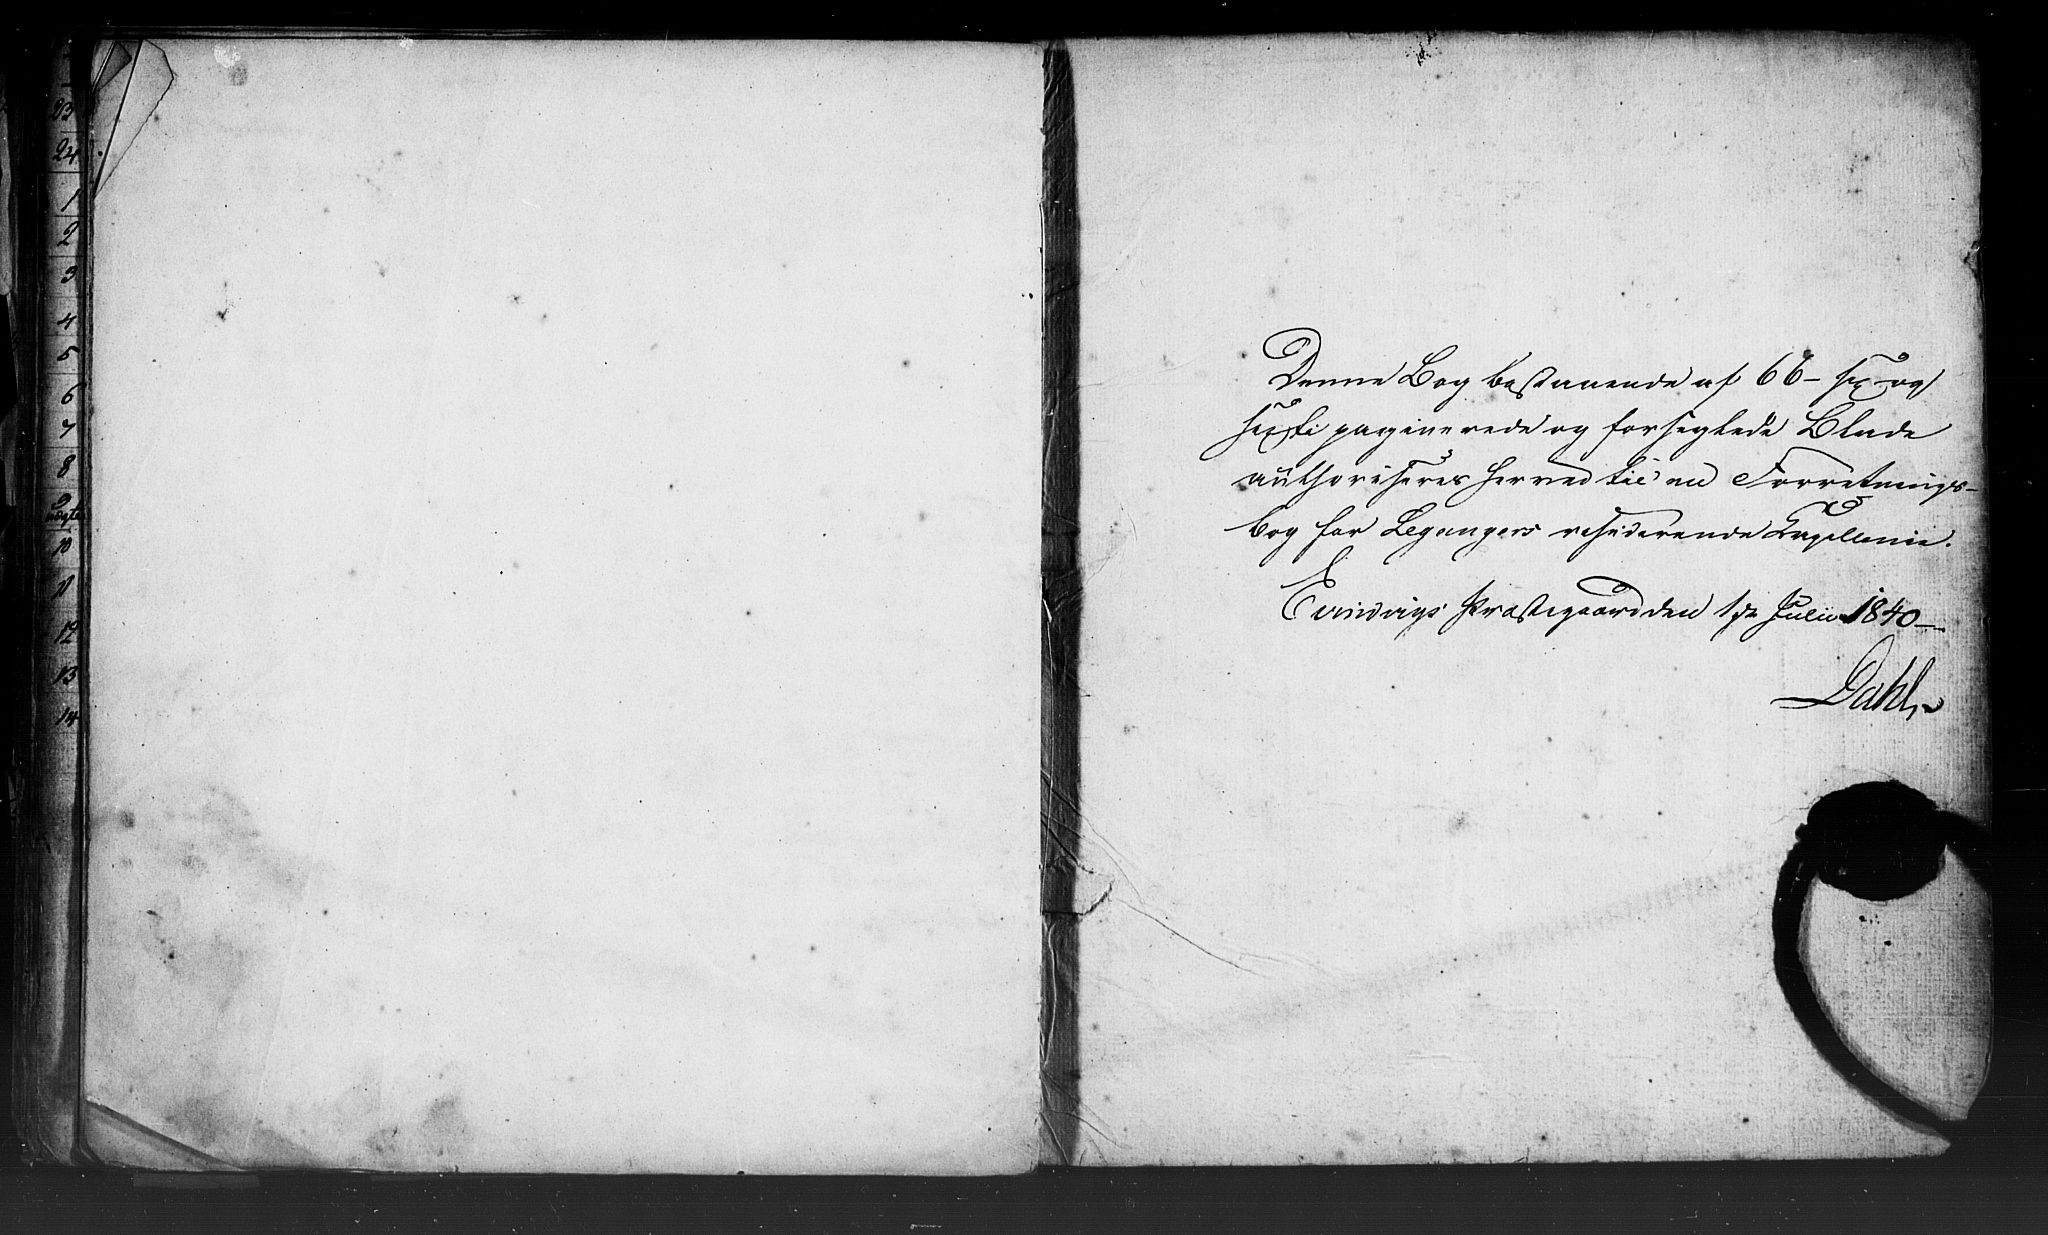 23
24
1
2
3
4
5
6
7
8
9
10
11
12
13
14
Denne Bog bestaaende af 66 – sex og
sexti paginerede og forseglede Blade
authoriseres herved til en Forretnings-
bog for Legangers residerende Capellanie.
Evindvigs Præstegaard den 1ste Julii 1840 –
Dahl,